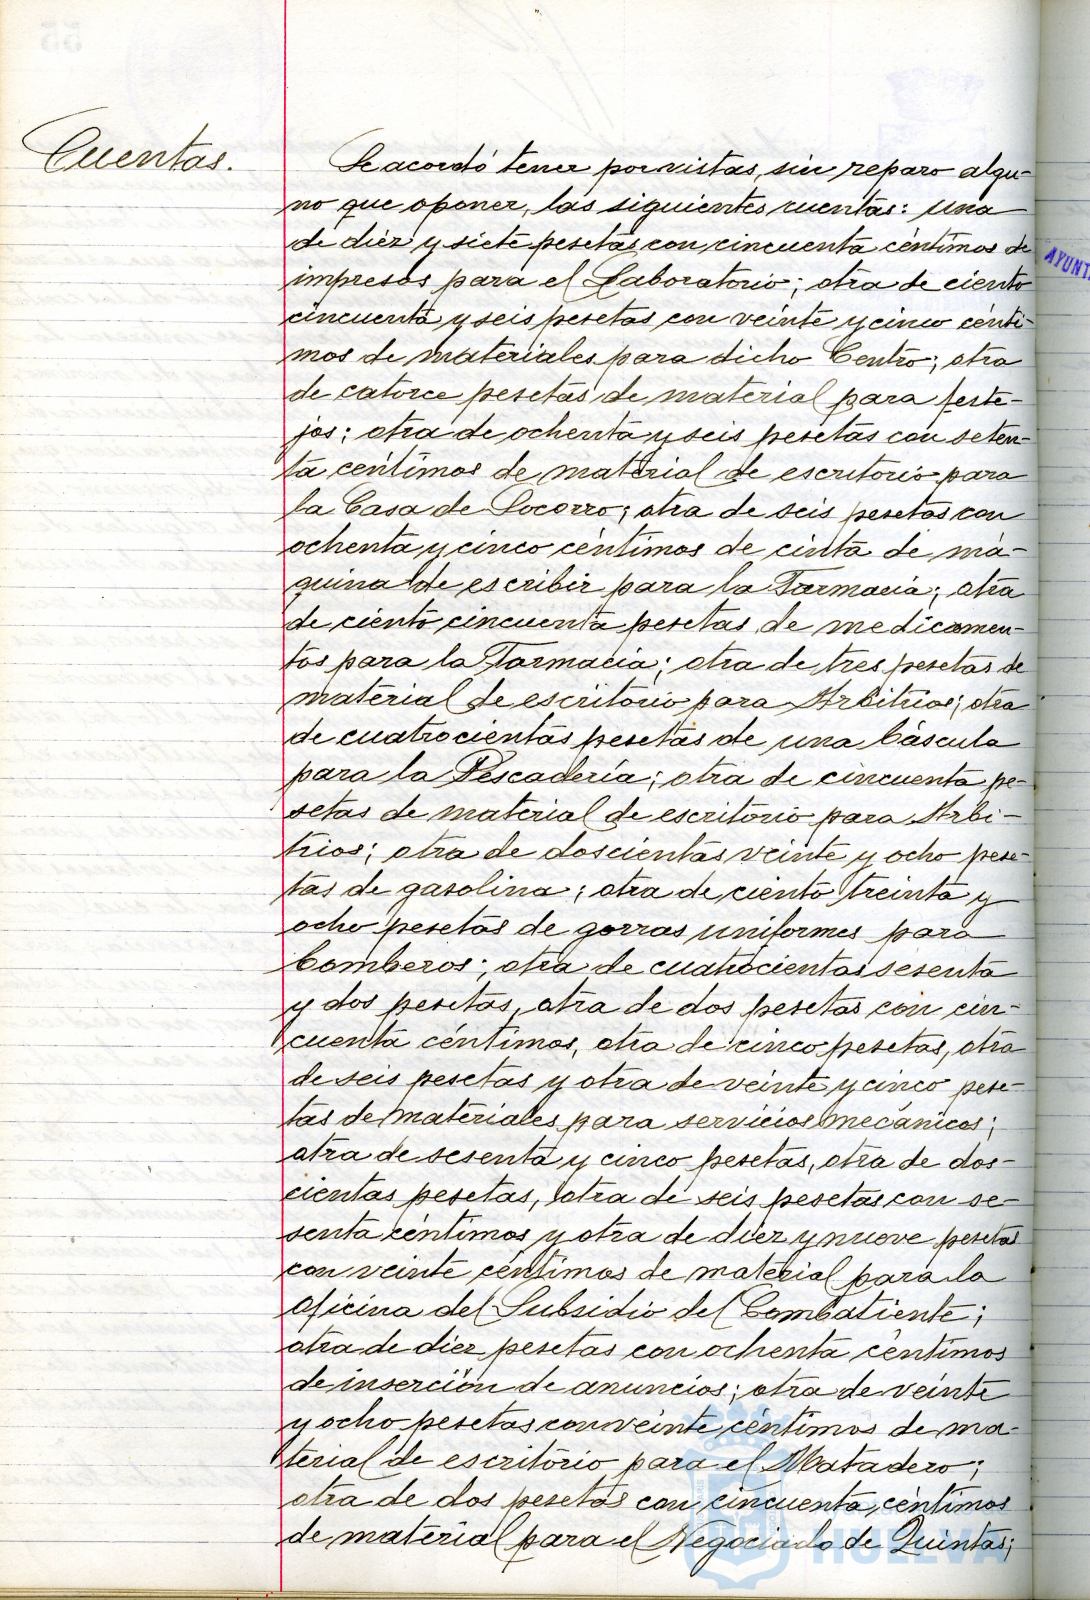 Cuentas.
Se acordó tener por vistas, sin reparo algu-
no que oponer, las siguientes cuentas: una
de diez y siete pesetas con cincuenta céntimos de
impresos para el Laboratorio; otra de ciento
cincuenta y seis pesetas con veinte y cinco cénti-
mos de materiales para dicho Centro; otra
de catorce pesetas de material para feste-
jos; otra de ochenta y seis pesetas con seten-
ta centimos de material de escritorio para
la Casa de Socorro; otra de seis pesetas con
ochenta y cinco céntimos de cinta de má-
quina de escribir para la Farmacia; otra
de ciento cincuenta pesetas de medicamen-
tos para la Farmacia; otra de tres pesetas de
material de escritorio para Arbitrios; otra
de cuatrocientas pesetas de una báscula
para la Pescadería; otra de cincuenta pe-
setas de material de escritorio para Arbi-
trios; otra de doscientas veinte y ocho pese-
tas de gasolina; otra de ciento treinta y
ocho pesetas de gorras uniformes para
bomberos; otra de cuatrocientas sesenta
y dos pesetas, otra de dos pesetas con cin-
cuenta céntimos, otra de cinco pesetas, otra
de seis pesetas y otra de veinte y cinco pese-
tas de materiales para servicios mecánicos;
otra de sesenta y cinco pesetas, otra de dos-
cientas pesetas, otra de seis pesetas con se-
senta céntimos y otra de diez y nueve pesetas
con veinte céntimos de material para la
oficina del Subsidio del Combatiente;
otra de diez pesetas con ochenta céntimos
de inserción de anuncios; otra de veinte
y ocho pesetas con veinte céntimos de ma-
terial de escritorio para el Matadero;
otra de dos pesetas con cincuenta céntimos
de material para el Negociado de Quintas;
AYUNT
HUELVA